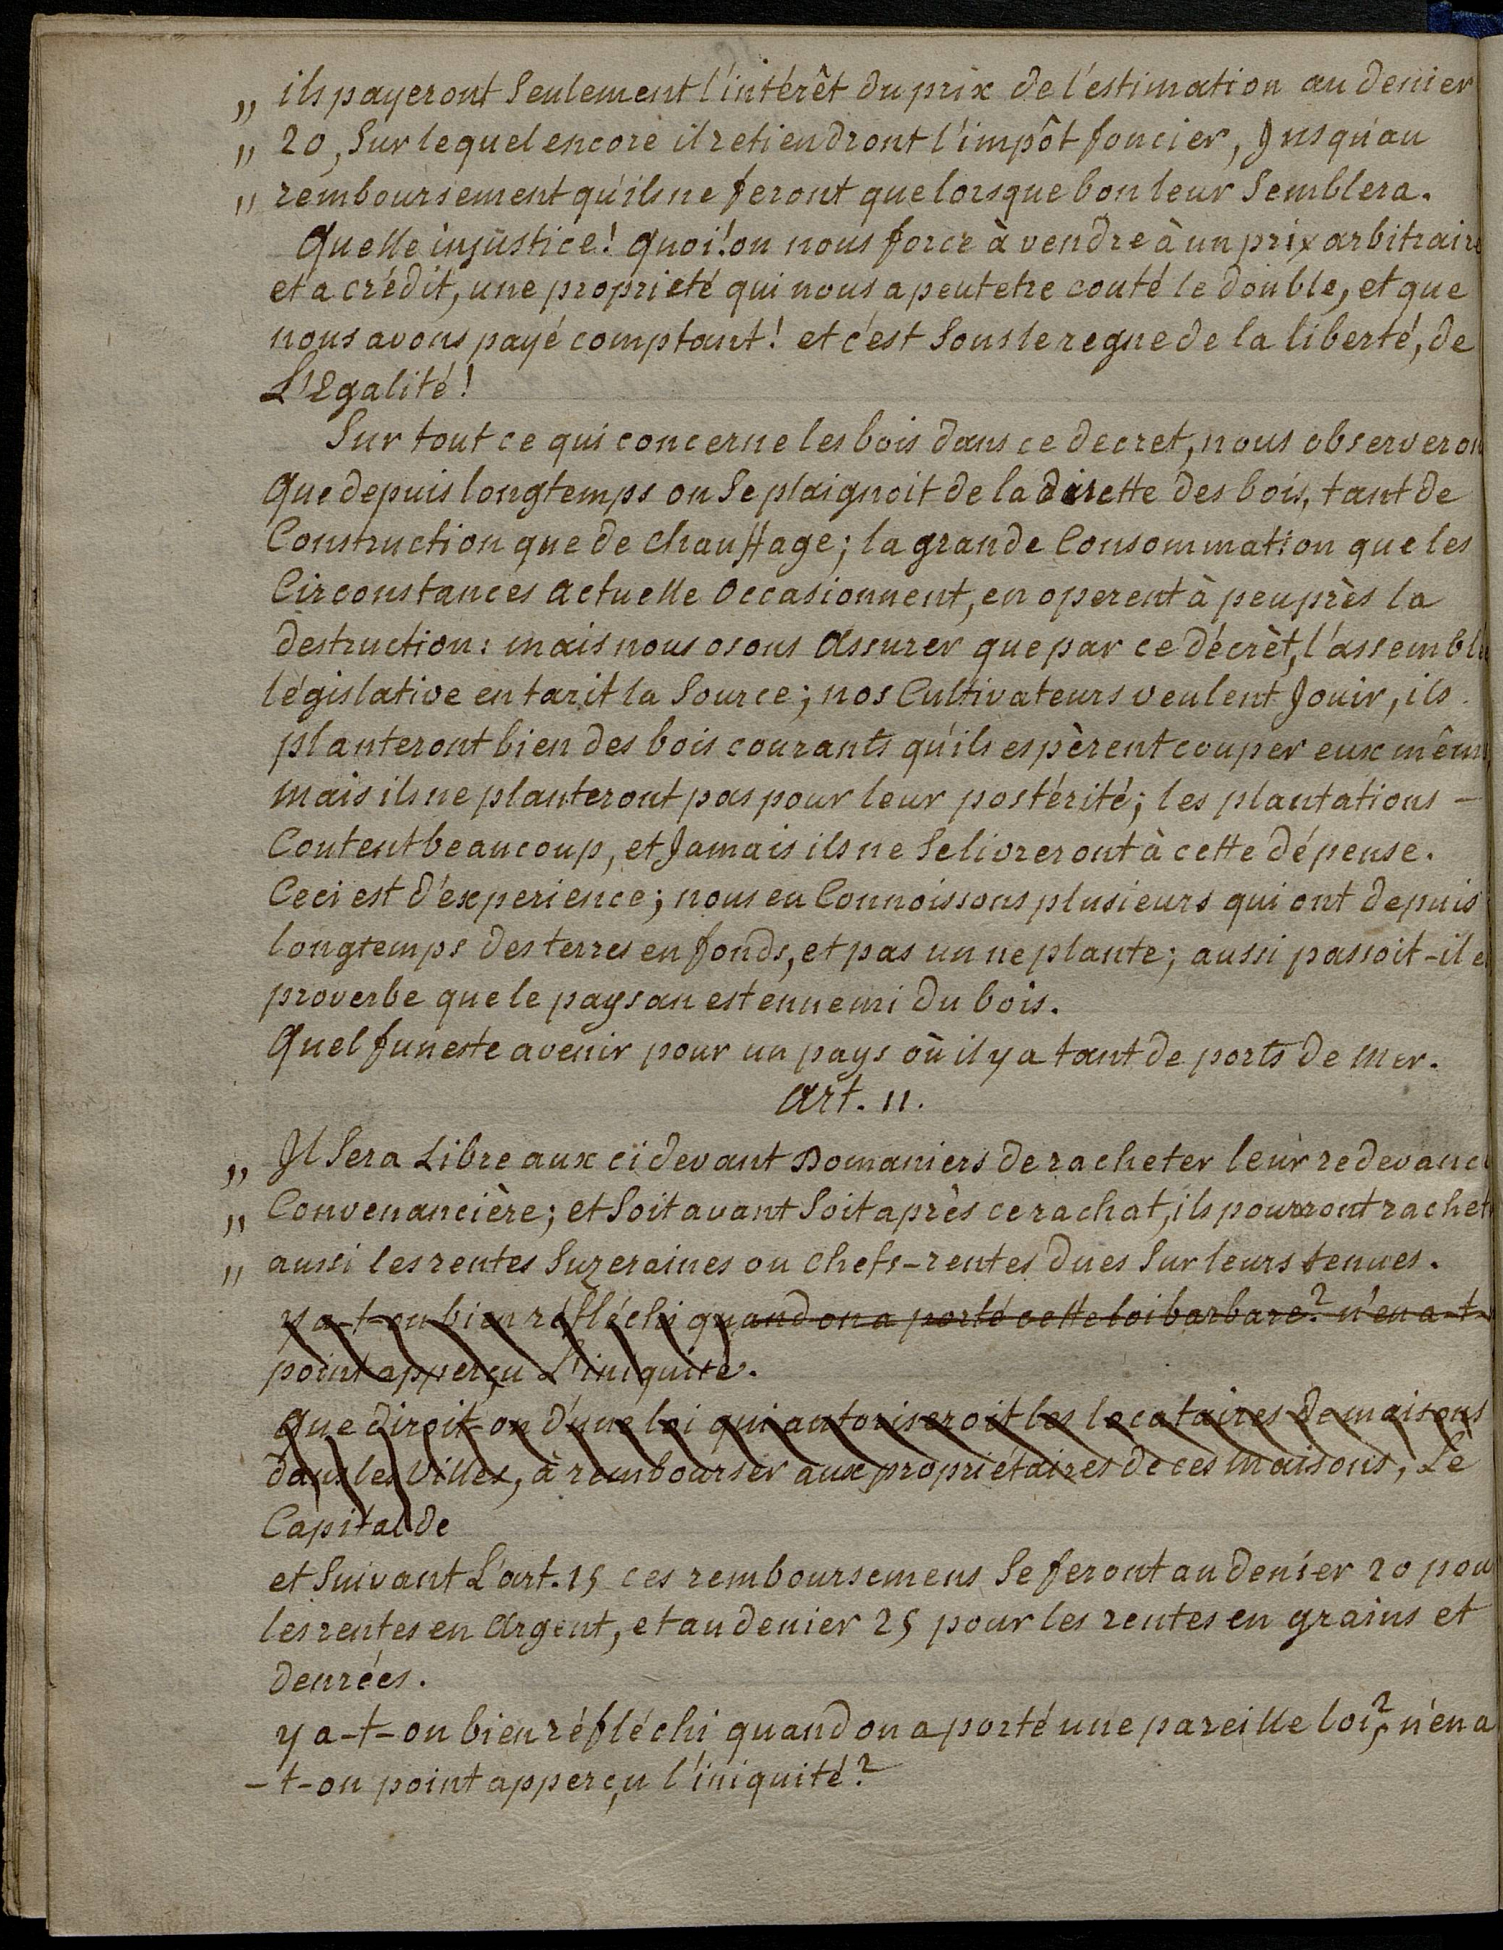 „ ils payeront Seulement l'intérêt du prix de l'estimation au denier
„ 20, Sur lequel encore il retiendront l'impôt foncier, Jusqu'au
„ remboursement qu'ils ne feront que lorsque bon leur Semblera.
Quelle injustice! Quoi! on nous force à vendre à un prix arbitraire
et a crédit, une proprieté qui nous a peutetre couté le double, et que
nous avons payé comptant! et c'est Sous le regne de la liberté, de
L'Egalité!
Sur tout ce qui concerne les bois dans ce decret, nous observeron
Que depuis longtemps on Se plaignoit de la disette des bois, tant de
Construction que de chauffage; la grande Consommation que les
Circonstances actuelle occasionnent, en operent à peuprès la
destruction: mais nous osons assurer que par ce décrèt, l'assemblé
législative en tarit la Source; nos Cultivateurs veulent Jouir, ils
planteront bien des bois courants qu'ils espèrent couper eux mêm
mais ils ne planteront pas pour leur postérité; les plantations -
Coutent beaucoup, et Jamais ils ne Se livreront à cette dépense.
Ceci est d'experience; nous en Connoissons plusieurs qui ont depuis
longtemps des terres en fonds, et pas un ne plante; aussi passoit-il e
proverbe que le paysan est ennemi du bois.
Quel funeste avenir pour un pays où il y a tant de ports de Mer.
Art. 11.
„ Il Sera Libre aux ci devant Domaniers de racheter leur redevance
„ Convenancière; et Soit avant Soit après ce rachat, ils pourront rachet
„ aussi les rentes Suzeraines ou chefs-rentes dues Sur leurs tenues.
y a-t-on bien réfléchi quand on a porté cette loi barbare? n'en a-t-
point apperçu L'iniquité.
Que diroit-on d'une loi qui autoriseroit les locataires de maisons
dans les Villes, à rembourser aux propriétaires de ces maisons, Le
Capital de
et Suivant L'art. 15 ces remboursemens Se feront au denier 20 pou
les rentes en Argent, et au denier 25 pour les rentes en grains et
denrées.
y a-t-on bien réfléchi quand on a porté une pareille loi? n'en a
-t-on point apperçu l'iniquité?